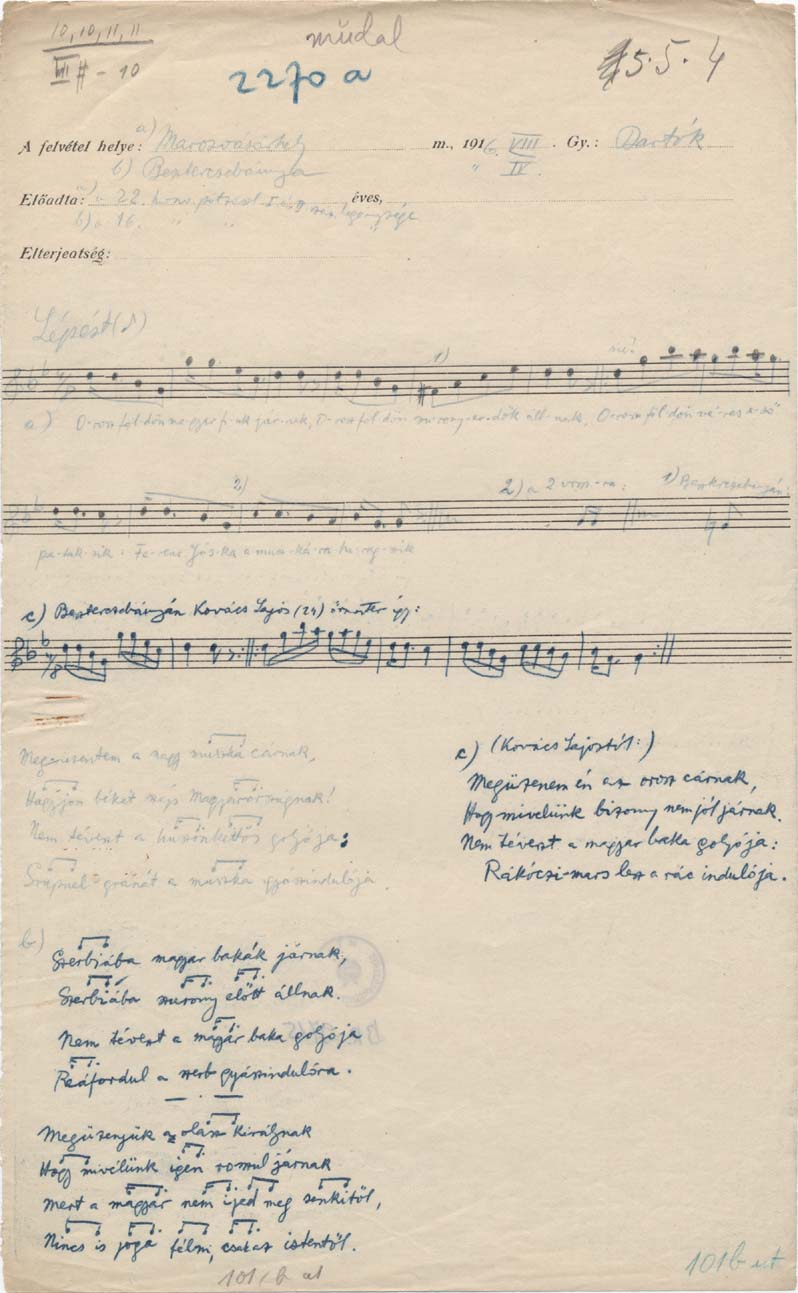 10, 10, 11, 11
műdal
VII # - 10
2270 a
5. 5. 4
A felvétel helye: a) Marosvásárhely m., 1916. VIII. Gy.: Bartók
b) Besztercebánya " IV.
Előadta: a) a 22. éves,
b) a 16. " "
Elterjedtség:
Lépést (♪)
1)
a) O-rosz föl-dön ma-gyar fi-uk jár-nak, O-rosz föl-dön szu-rony-er-dők áll-nak, O-rosz föl-dön vé-res e-ső
2) 2) a 2 vrsz.-ra: 1) Besztercebányán:
pa-tak-zik: Fe-renc Jós-ka a musz-ká-ra ha-rag-szik
c) Besztercebányán Kovács Lajos (24) őrmester így:
Megüzentem a nagy muszka cárnak,
Hagyjon békét szép Magyarországnak!
Nem téveszt a golyója:
Srapnel-gránát a muszka gyászindulója
c) (Kovács Lajostól:)
Megüzenem én az orosz cárnak,
Hogy mivelünk bizony nem jól járnak.
Nem téveszt a magyar baka golyója:
Rákóczi-mars lesz a rác indulója.
b)
Szerbiába magyar bakák járnak,
Szerbiába szurony előtt állnak.
Nem téveszt a magyar baka golyója
Reáfordul a szerb gyászindulóra.
Megüzenjük az olasz királynak
Hogy mivélünk igen rosszul járnak
mert a magyar nem ijed meg senkitől,
Nincs is joga félni, csak az istentől.
101/b al
101b ut